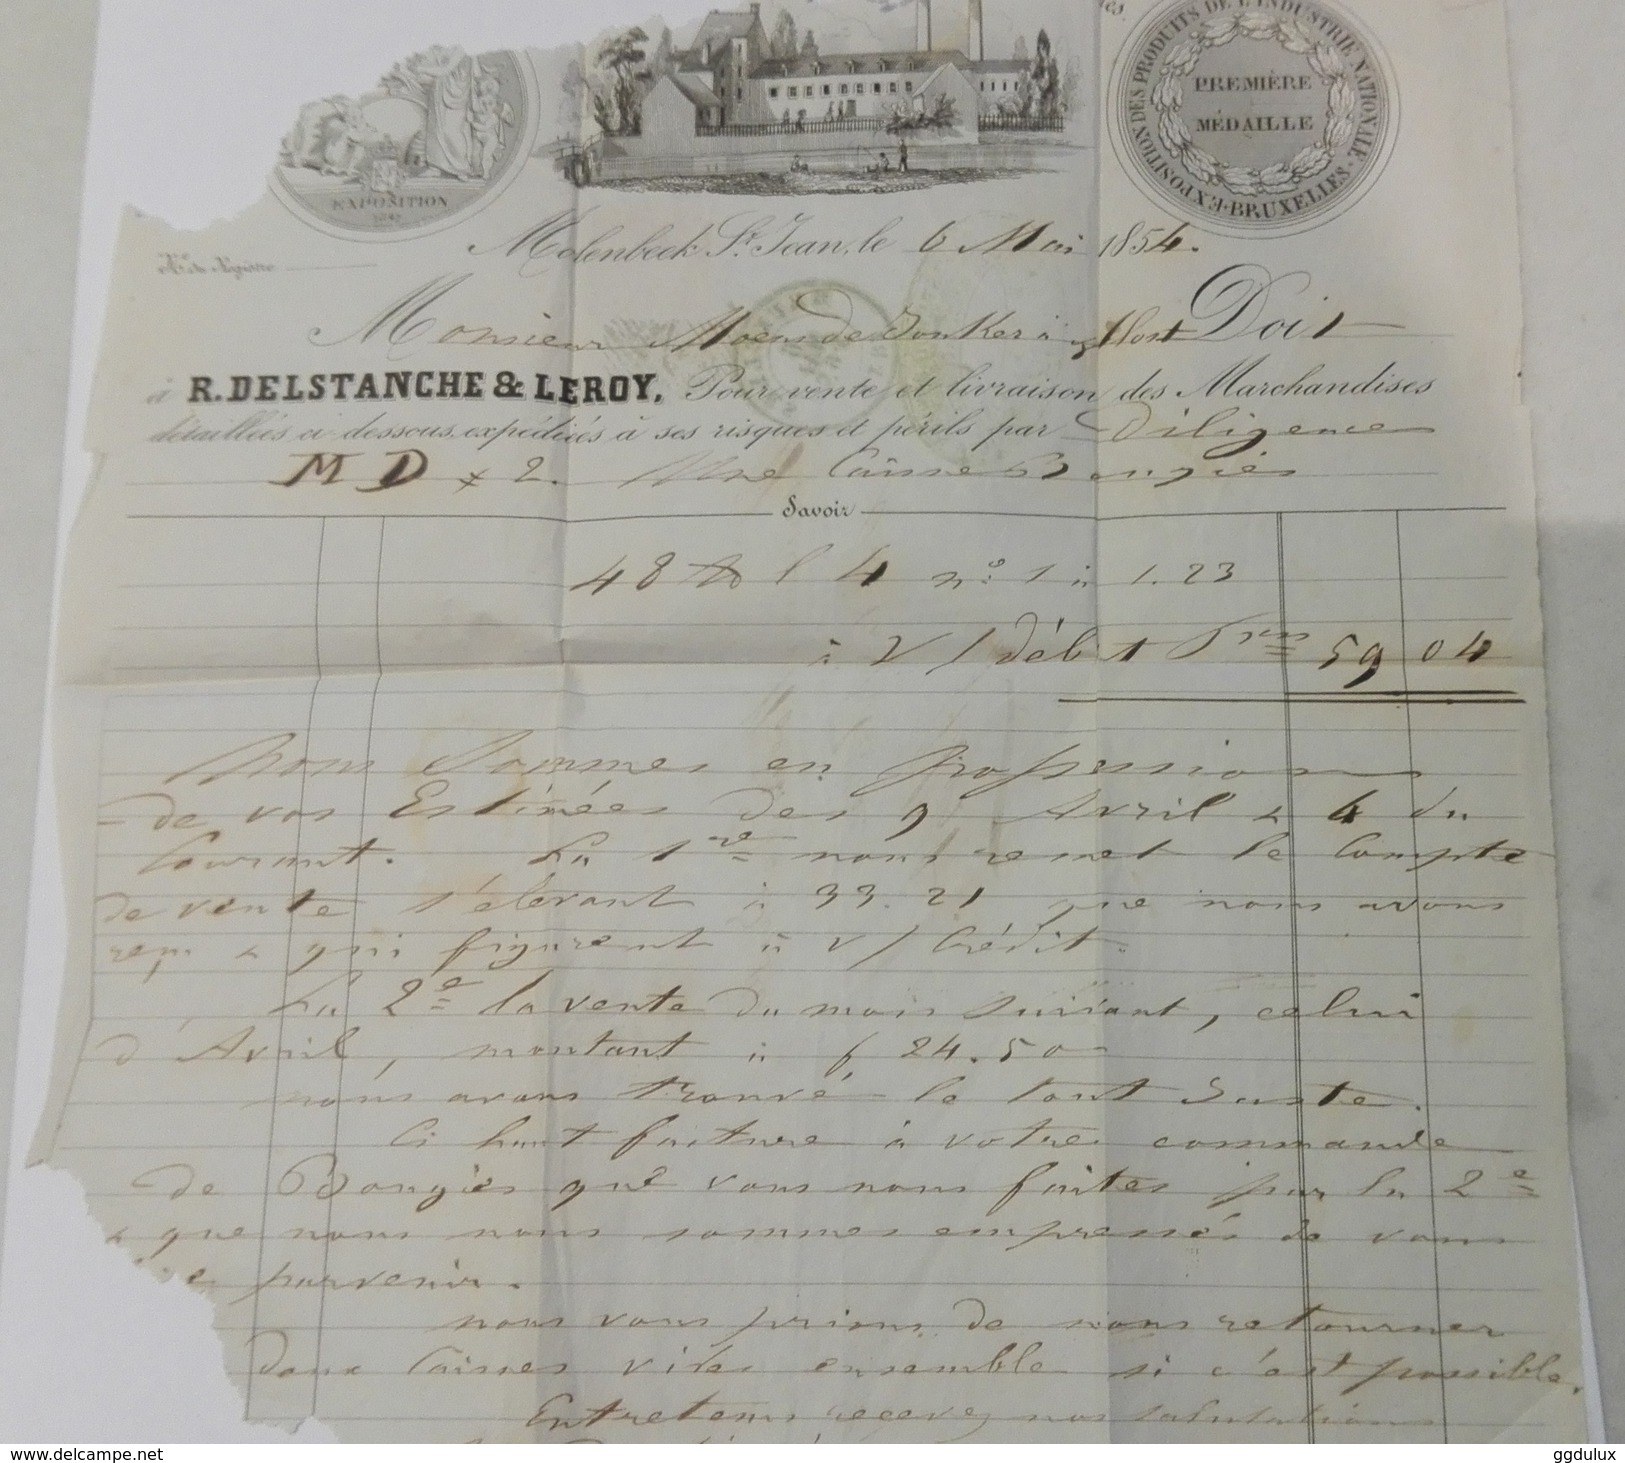 EXPOSITION
1847
EXPOSITION DES PRODUITS DE L'INDUSTRIE NATIONALE. BRUXELLES
PREMIÈRE
MÉDAILLE
Molenbeek St. Jean, le 6 Mai 1854.
No. du Registre
Monsieur Moens de Jonker à Alost Doit
à R. DELSTANCHE & LEROY, Pour vente et livraison des Marchandises
détaillées ci-dessous, expédiées à ses risques et périls par Diligence
M D x 2. Une Caisse Bougies
Savoir
48 l 4 no. 1 à 1.23
à V/ débit Frcs 59 04
Nous sommes en possession
de vos Estimées des 9 Avril & 4 du
Courant. La 1re nous remet le Compte
de vente s'élevant à 33.21 que nous avons
reçu & qui figurent à V/ Crédit.
La 2e la vente du mois suivant, celui
d'Avril, montant à f 24.50
nous avons trouvé le tout Juste.
Ci haut facture à votre commande
de Bougies que vous nous faites par la 2e
& que nous nous sommes empressés de vous
parvenir.
nous vous prions de nous retourner
deux Caisses vides ensemble si c'est possible.
Entretems recevez nos salutations
www.delcampe.net
ggdulux